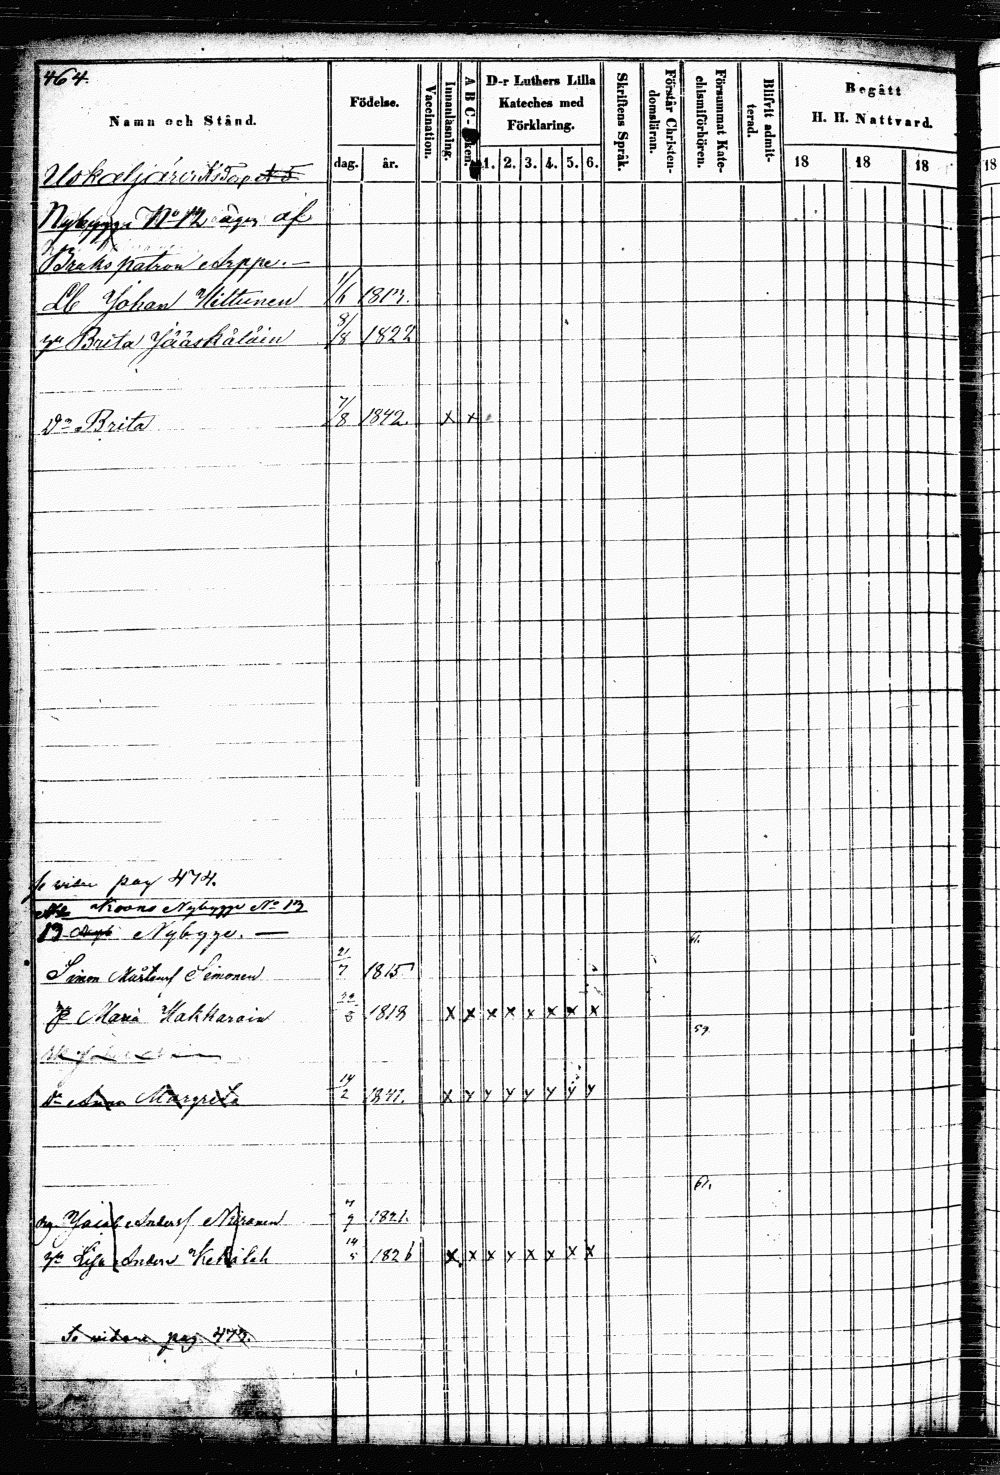 464.
Namn och Stånd.
Födelse.
dag.
år.
Vaccination.
Innanläsning.
A B C-
D-r Luthers Lilla
Kateches med
Förklaring.
1. 2. 3. 4. 5. 6.
Skriftens Språk.
Förstår Christen-
domsläran.
Försummat Kate-
chismiförhören.
Blifvit admit-
terad.
Begått
H. H. Nattvard.
18 18 18 18
Uskaljärvi
Nybygge No 12 äges af
Bruks patron Arppe. —
Lb Johan Hiltunen 1/6 1813.
hu Brita Jääskäläin 8/8 1822
Dr Brita 7/8 1842. x x
Se vidare pag 474.
Krono Nybygge No 13
13 Nybygge. —
61.
Simon Mårtens Simonen 21/7 1815
hu Maria Hakkarain 22/5 1818 x x x x x x x x
59.
Dr Anna Margreta 14/2 1841. x y y y y y y y
61.
Jacob Anders Nuranen 7/9 1821.
hu Lisa Anders 14/5 1826 x x x x x x x x
Se vidare pag 473.